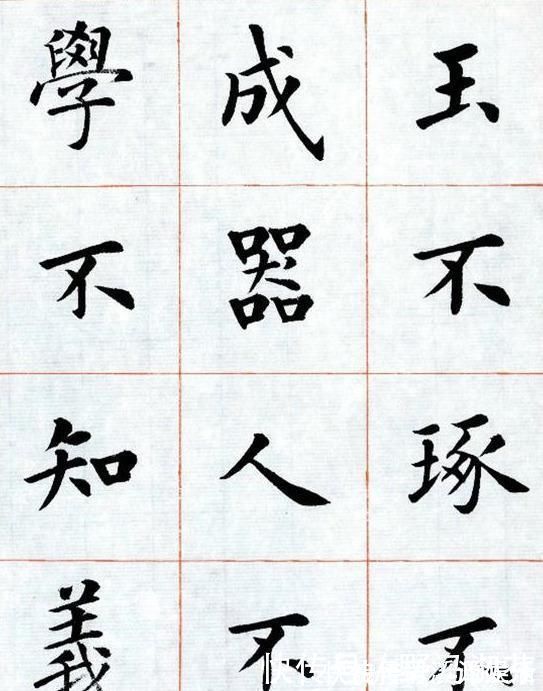 玉不琢不
成器人不
學不知義